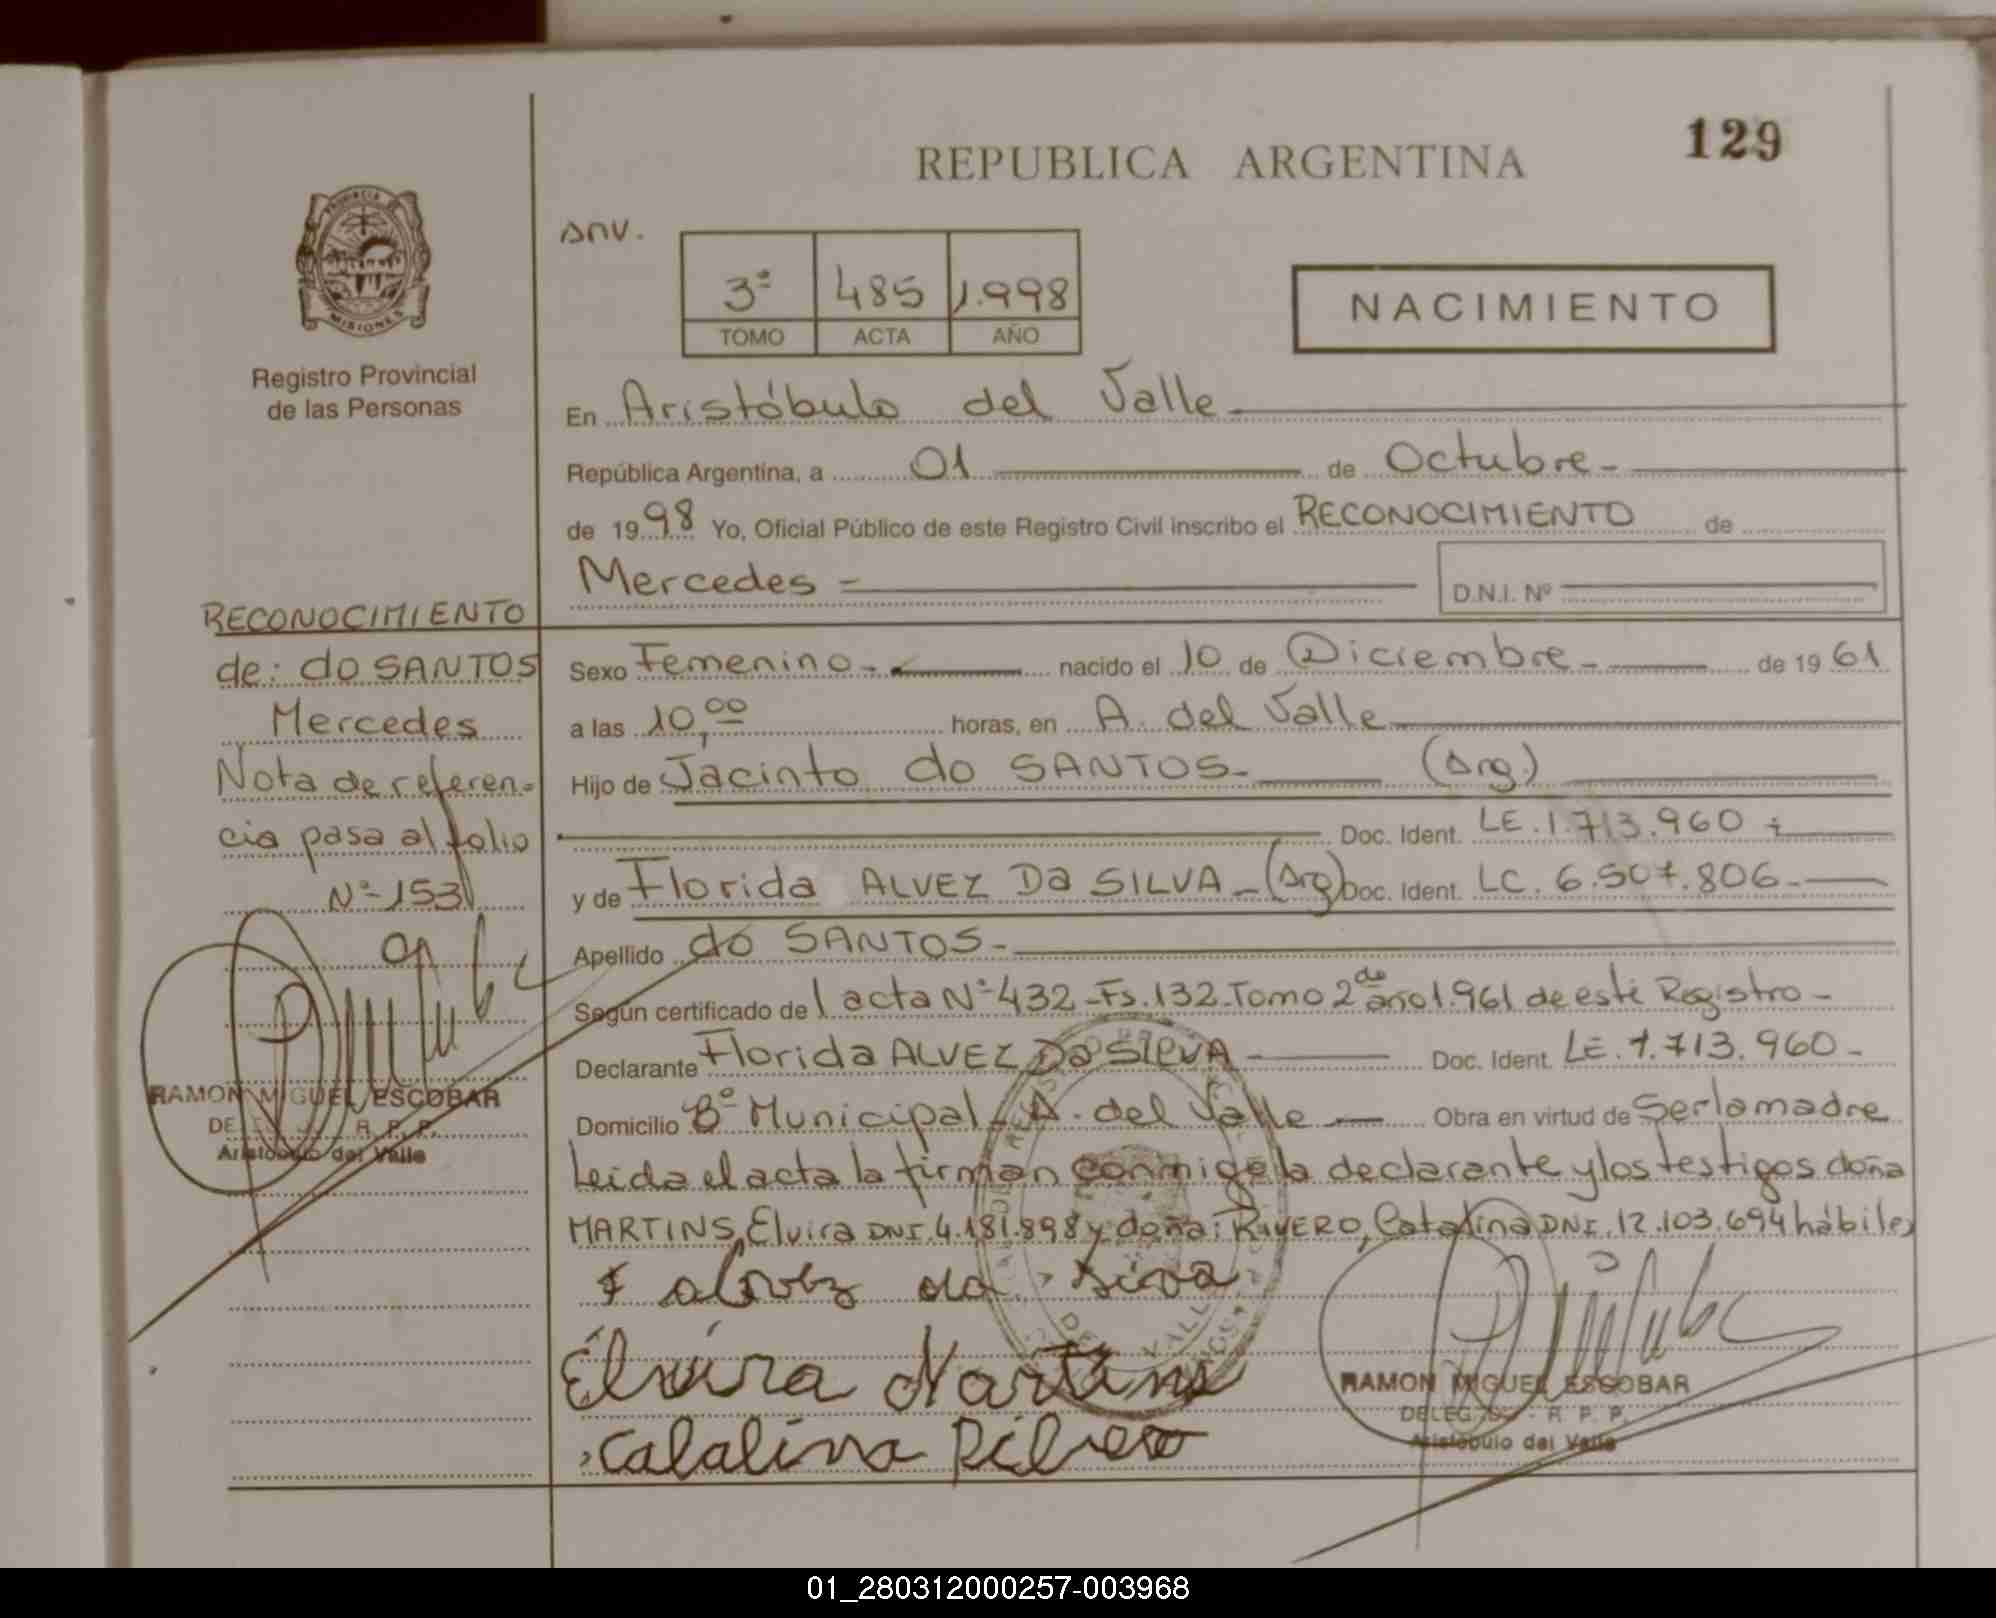 129
REPUBLICA ARGENTINA
PROVINCIA DE
MISIONES
Registro Provincial
de las Personas
anv.
3º 485 1.998
TOMO ACTA AÑO
NACIMIENTO
En Aristóbulo del Valle
República Argentina, a 01 de Octubre-
de 1998 Yo, Oficial Público de este Registro Civil inscribo el RECONOCIMIENTO de
Mercedes =
D.N.I. Nº
Sexo Femenino- nacido el 10 de Diciembre- de 1961
a las 10,00 horas, en A. del Valle
Hijo de Jacinto do SANTOS- (Arg.)
Doc. Ident. LE.1.713.960
y de Florida ALVEZ Da SILVA-(Arg) Doc. Ident. LC. 6.507.806-
Apellido do SANTOS-
Según certificado de l acta Nº432-Fs.132-Tomo 2do año 1.961 de este Registro-
Declarante Florida ALVEZ Da SILVA Doc. Ident. LE.1.713.960-
Domicilio Bº Municipal-A. del Valle Obra en virtud de Ser la madre
Leída el acta la firman conmigo la declarante y los testigos doña
MARTINS, Elvira DNI.4.181.898 y doña: RIVERO, Catalina DNI.12.103.694 hábiles
F alvez da siva
Elvira Martins
Catalina Ribero
RAMON MIGUEL ESCOBAR
DELEGADO - R. P. P.
Aristóbulo del Valle
RECONOCIMIENTO
de: do SANTOS
Mercedes
Nota de referen=
cia pasa al folio
Nº-153
RAMON MIGUEL ESCOBAR
R. P. P.
Aristóbulo del Valle
01_280312000257-003968